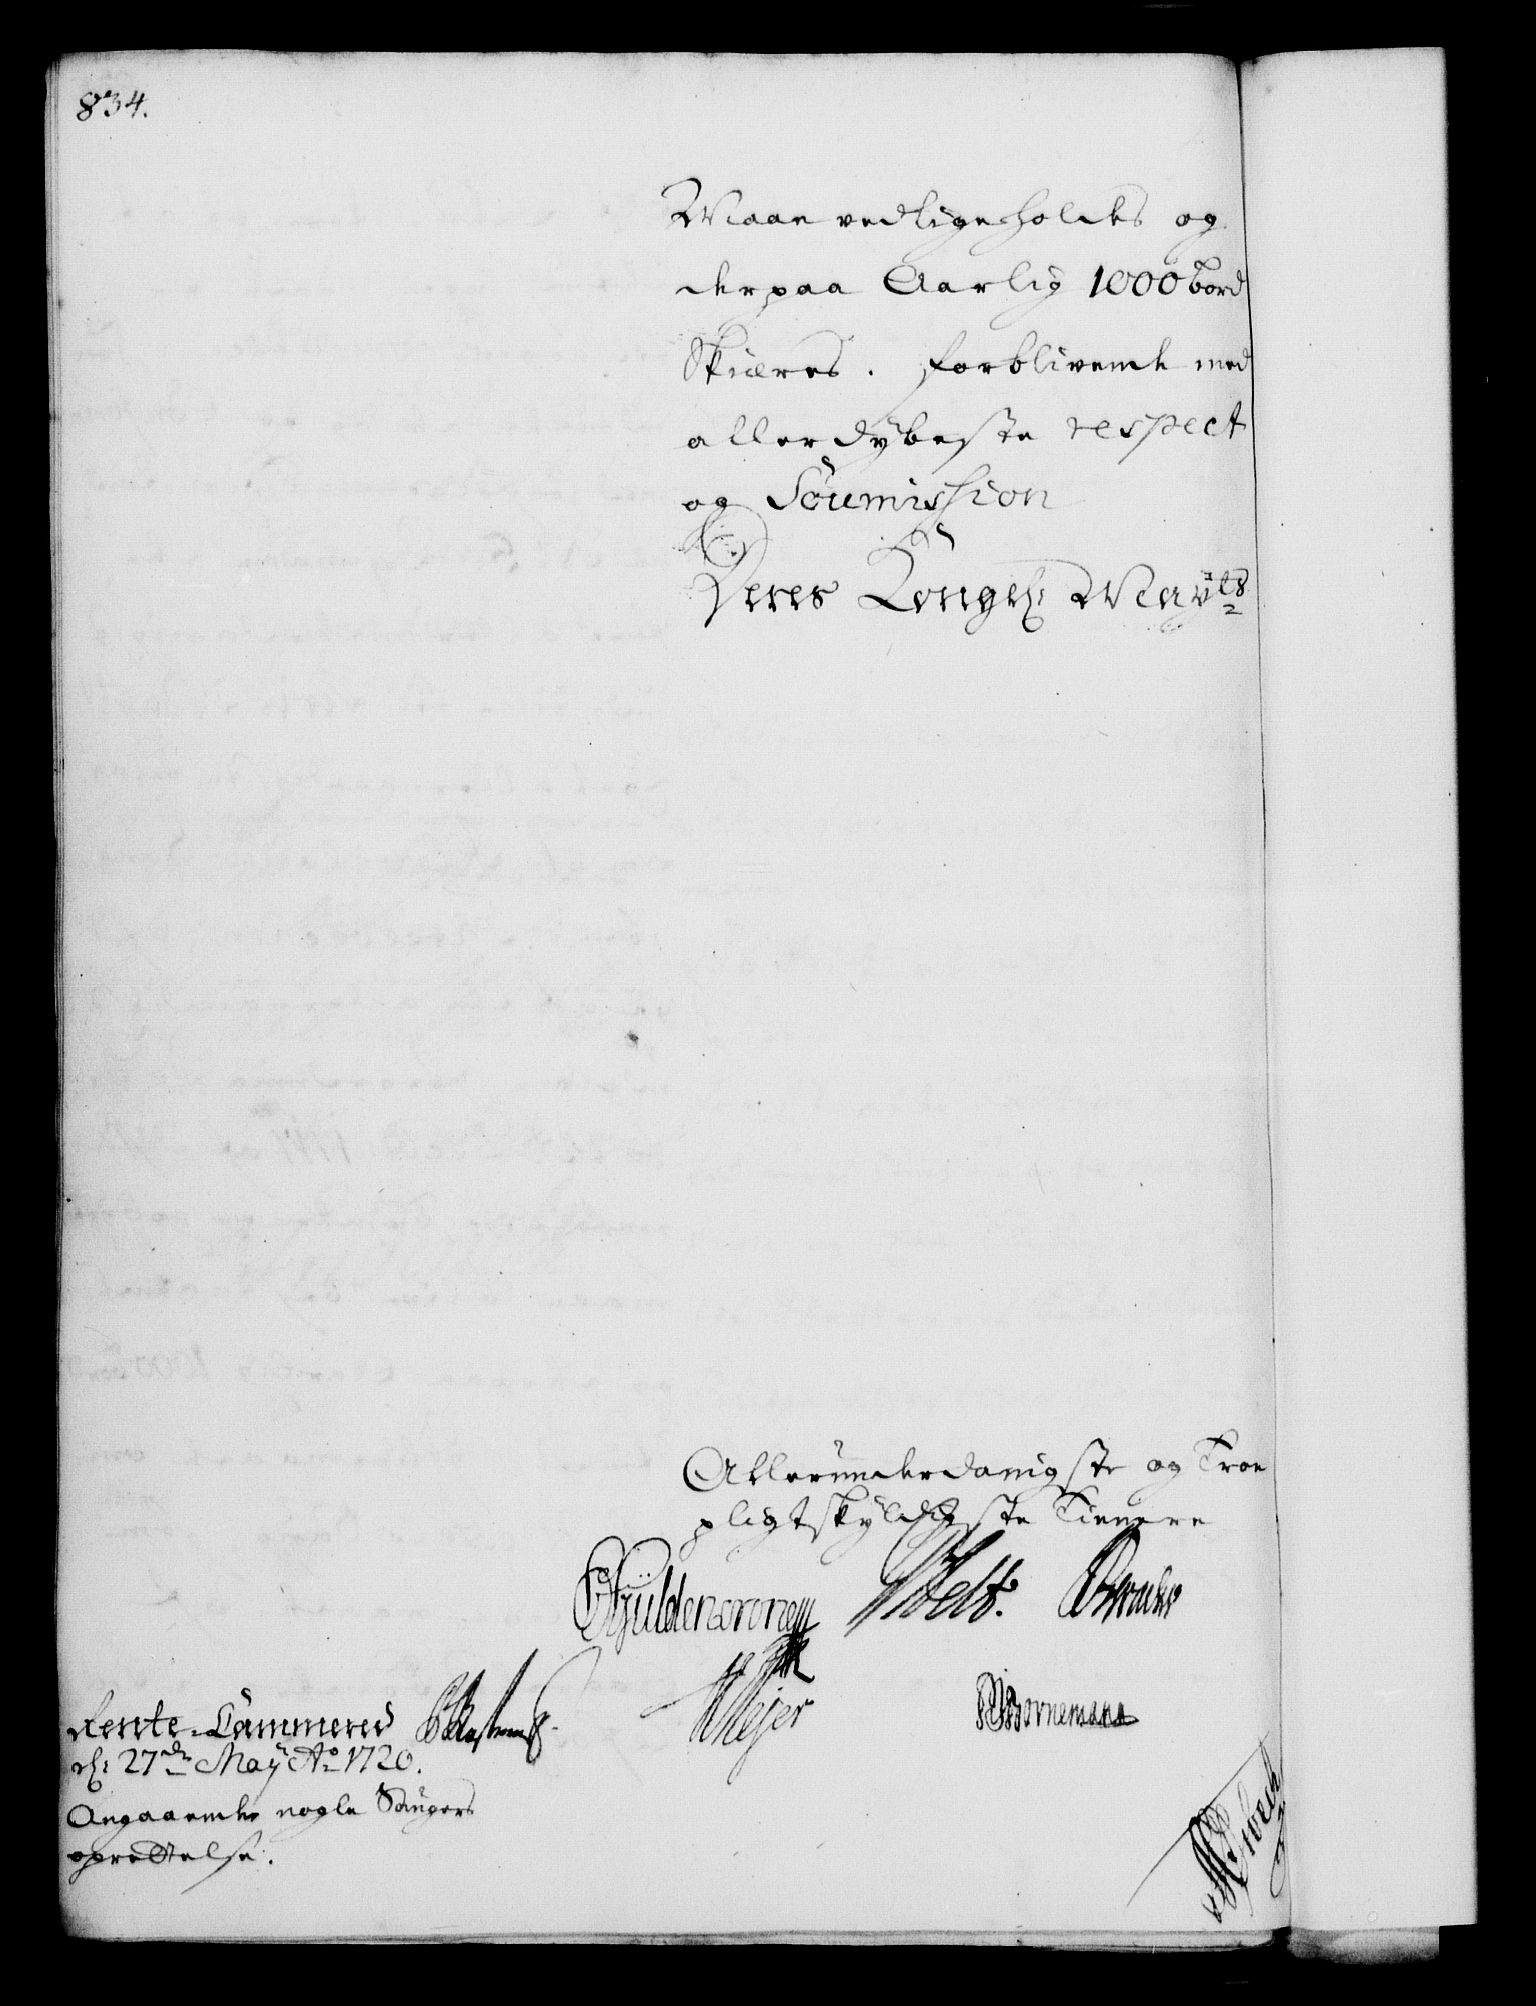 834.
Maae vedligeholdes og
derpaa Aarlig 1000 bord
Skiæres. forblivende med
allerdybeste respect
og Soumission
Deres Kongel: May:ts
Allerunderdanigste og Troe
pligtskyldigste Tienere
Gyldencrone
Meyer
Bornemann
Rente-Cammered
d: 27de May Ao 1720.
Angaaende nogle Saugers
oprettelse.